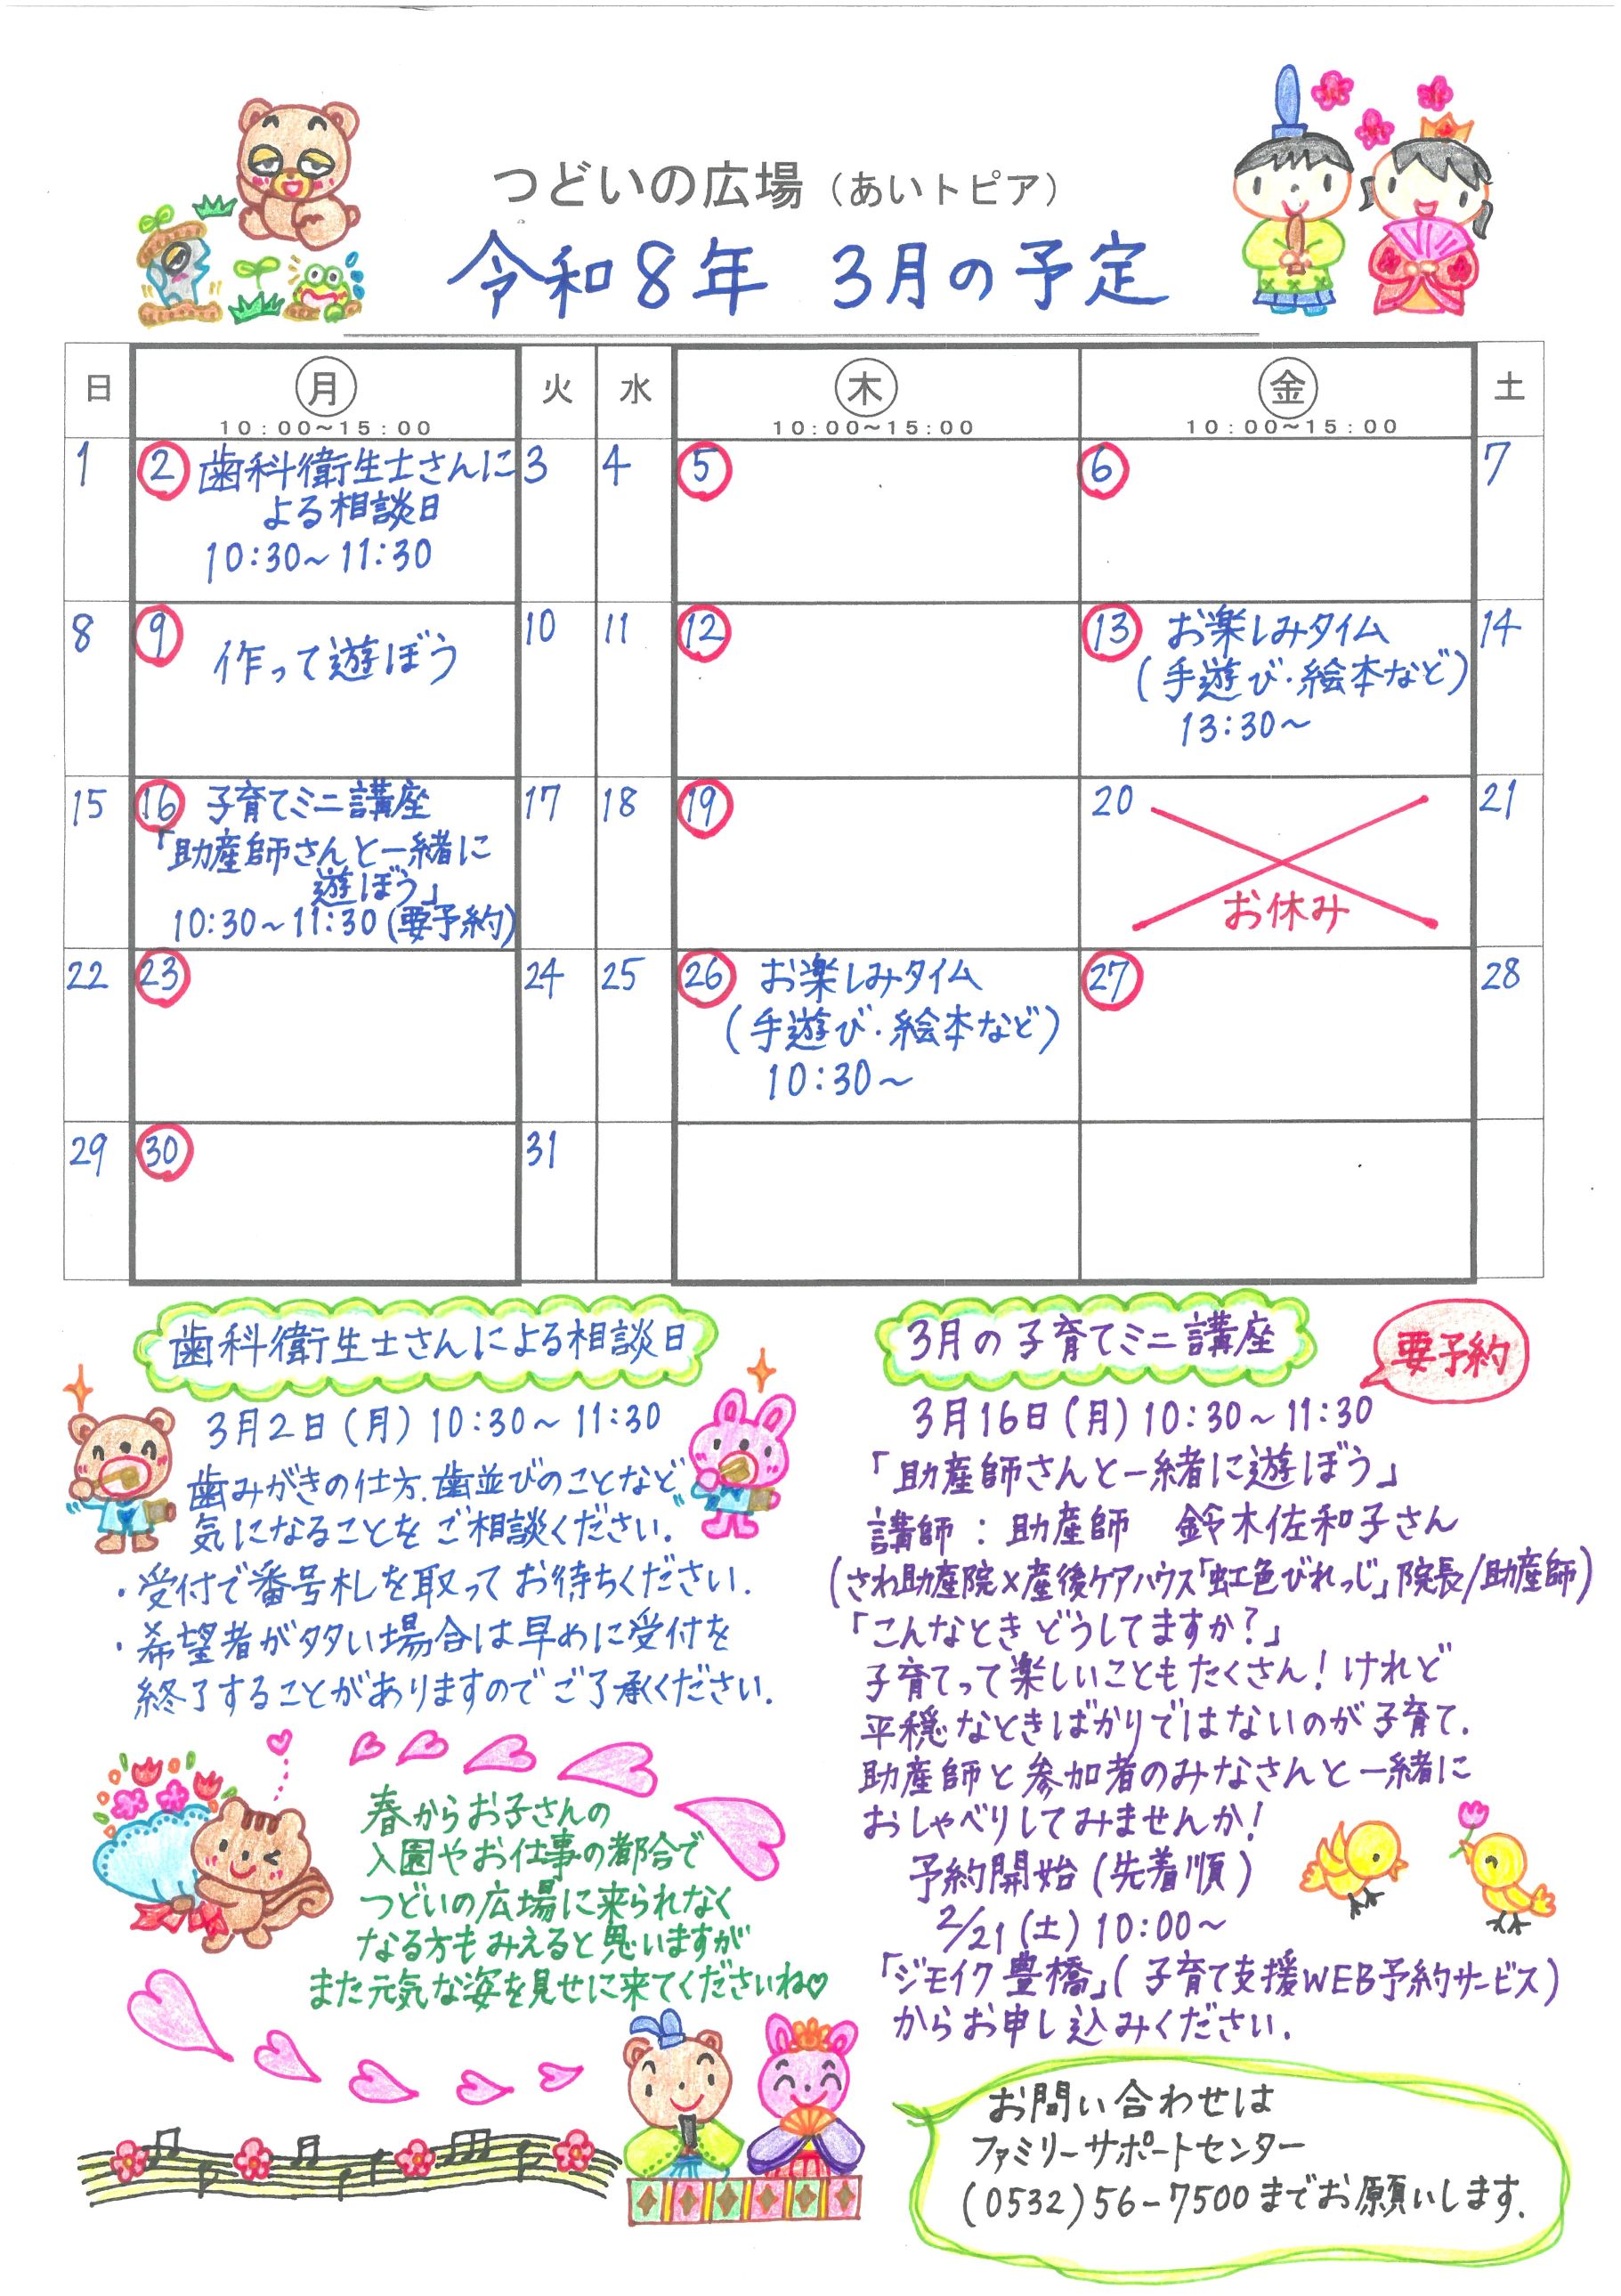 つどいの広場（あいトピア）
令和8年 3月の予定
日 月 火 水 木 金 土
10:00~15:00 10:00~15:00 10:00~15:00
1
2 歯科衛生士さんに
よる相談日
10:30~11:30
3
4
5
6
7
8
9 作って遊ぼう
10
11
12
13 お楽しみタイム
(手遊び・絵本など)
13:30~
14
15
16 子育てミニ講座
「助産師さんと一緒に
遊ぼう」
10:30~11:30(要予約)
17
18
19
20
お休み
21
22
23
24
25
26 お楽しみタイム
(手遊び・絵本など)
10:30~
27
28
29
30
31
歯科衛生士さんによる相談日
3月2日(月)10:30~11:30
歯みがきの仕方、歯並びのことなど
気になることをご相談ください。
・受付で番号札を取ってお待ちください。
・希望者が多い場合は早めに受付を
終了することがありますのでご了承ください。
春からお子さんの
入園やお仕事の都合で
つどいの広場に来られなく
なる方もみえると思いますが
また元気な姿を見せに来てくださいね♡
3月の子育てミニ講座
要予約
3月16日(月)10:30~11:30
「助産師さんと一緒に遊ぼう」
講師：助産師 鈴木佐和子さん
(さわ助産院×産後ケアハウス「虹色びれっじ」院長/助産師)
「こんなとき どうしてますか？」
子育てって楽しいこともたくさん！けれど
平穏なときばかりではないのが子育て。
助産師と参加者のみなさんと一緒に
おしゃべりしてみませんか！
予約開始(先着順)
2/21(土)10:00~
「ジモイク豊橋」(子育て支援WEB予約サービス)
からお申し込みください。
お問い合わせは
ファミリーサポートセンター
(0532)56-7500までお願いします。